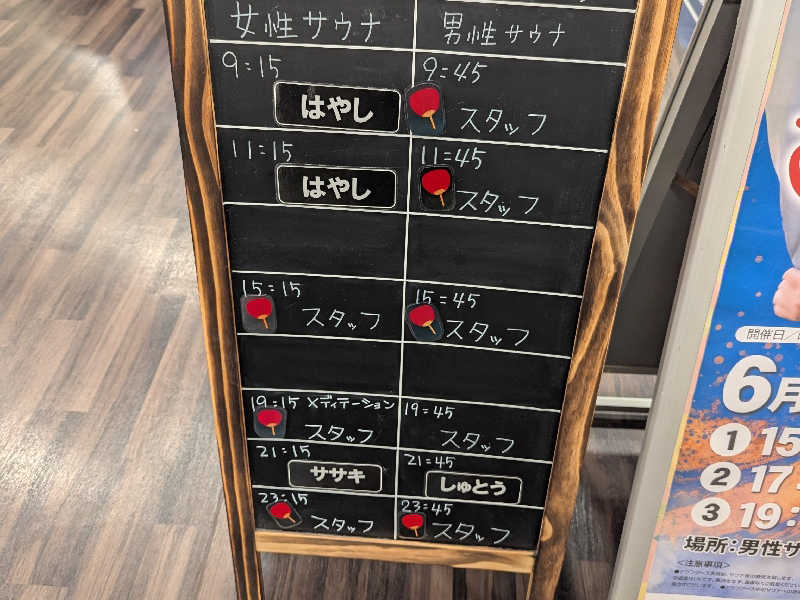 女性サウナ 男性サウナ
9:15 9:45
はやし スタッフ
11:15 11:45
はやし スタッフ
15:15 15:45
スタッフ スタッフ
19:15 メディテーション 19:45
スタッフ スタッフ
21:15 21:45
ササキ しゅとう
23:15 23:45
スタッフ スタッフ
開催日/
6月
1 15
2 17:
3 19:
場所:男性サ
<注意事項>